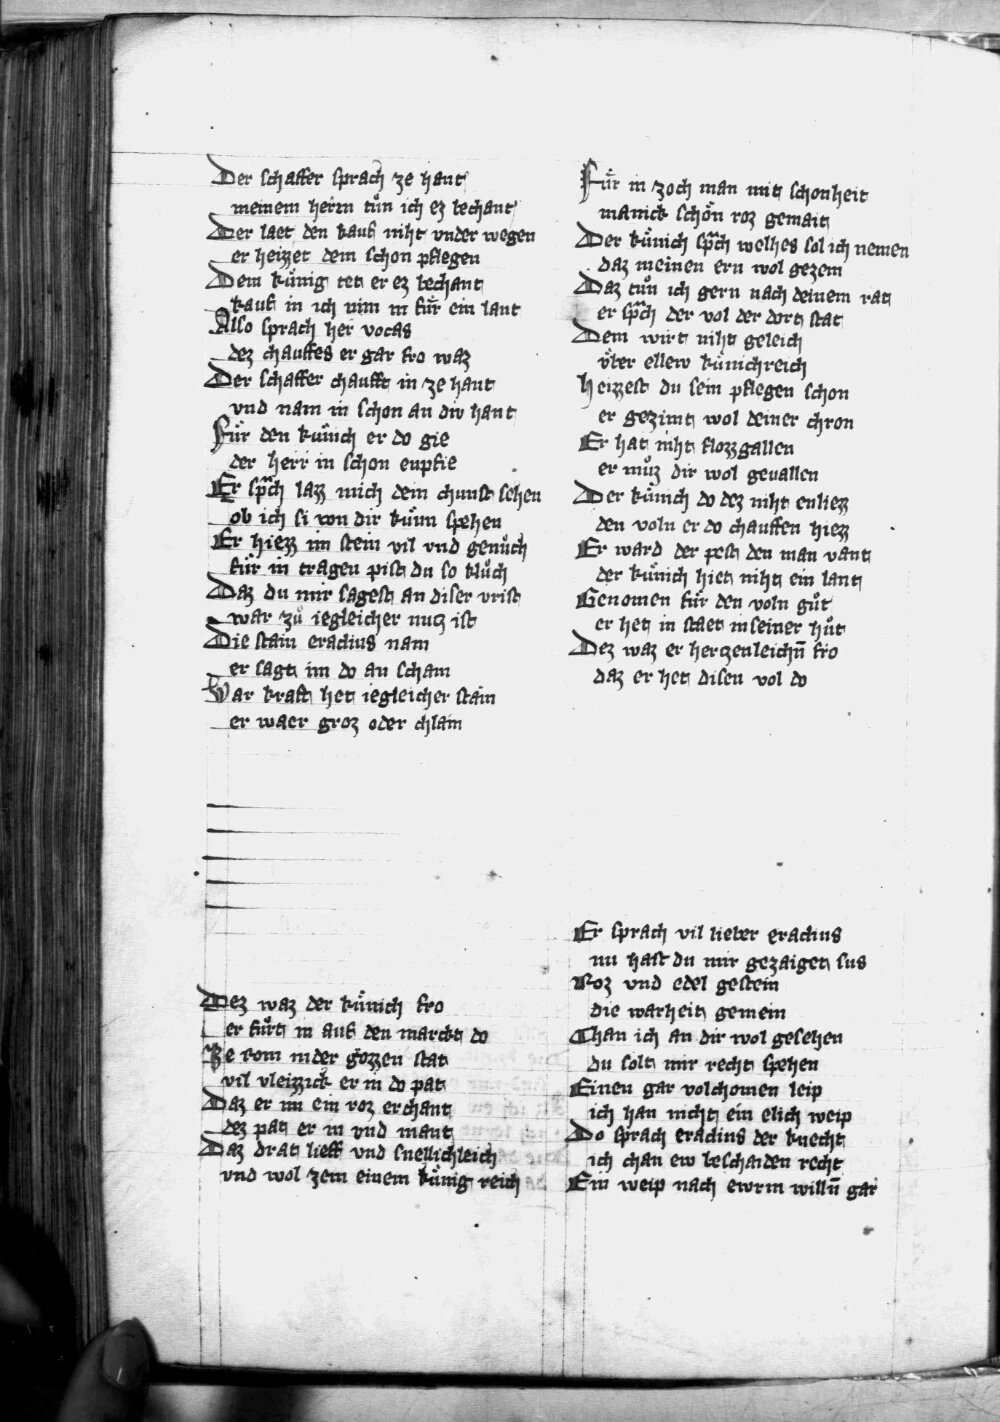 Der schaffer sprach ze hant
meinem herrn tuͦn ich ez bechant
Der laet den kauf niht vnder wegen
er heizzet dem schon pflegen
Dem kuͤnig tet er ez bechant
kauf in ich nim in fuͤr ein lant
Also sprach her vocas
dez chauffes er gar fro waz
Der schaffer chaufft in ze hant
vnd nam in schon an diu hant
Fuͤr den kuͤnich er do gie
der herr in schon enpfie
Er sp̃ch lazz mich dem chunst sehen
ob ich si von dir kuͤnn spehen
Er hiezz im stein vil vnd genuͦch
fuͤr in tragen pist du so kluͦch
Daz du mir sagest an diser vrist
war zuͦ iegleicher nutz ist
Die stain eraclius nam
er sagt im do an scham
War kraft het iegleicher stain
er waer groz oder chlain
Dez waz der kuͤnich fro
er fuͤrt in auf den marckt do
Ze rom in der grozzen stat
vil vleizzick er in do pat
Daz er im ein roz erchant
dez pat er in vnd mant
Daz drat lieff vnd snellichleich
vnd wol zem einem kuͤnig reich
Fuͤr in zoch man mit schonheit
manick schoͤn roz gemait
Der kuͤnich sp̃ch welhes sol ich nemen
daz meinen ern wol gezem
Daz tuͦn ich gern nach deinem rat
er sp̃ch der vol der dort stat
Dem wirt niht geleich
vͤber ellew kuͤnichreich
Heizzest du sein pflegen schon
er gezimt wol deiner chron
Er hat niht flozzgallen
er muͦz dir wol geuallen
Der kuͤnich do dez niht enliezz
den voln er do chauffen hiezz
Er ward der pest den man vant
der kuͤnich hiet niht ein lant
Genomen fuͤr den voln guͦt
er het in staet in seiner huͦt
Dez waz er hertzenleichn̄ fro
daz er het disen vol do
Er sprach vil lieber eraclius
nu hast du mir gezaiget sus
Roz vnd edel gestein
die warheit gemein
Chan ich an dir wol gesehen
du solt mir recht spehen
Einen gar volchomen leip
ich han nicht ein elich weip
Do sprach eraclius der knecht
ich chan ew beschaiden recht
Ein weip nach ewrm willn̄ gar